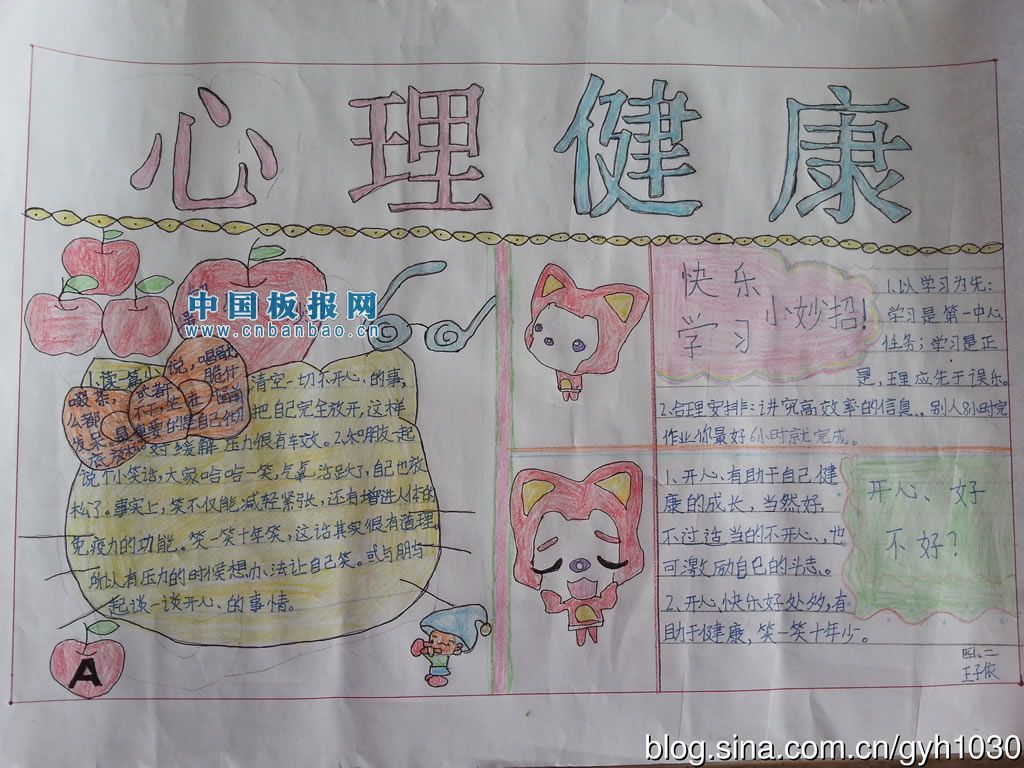 心理健康
中国板报网
www.cnbanbao.cn
1.读一篇小说，唱歌
清空一切不开心、的事，
把自己完全放开，这样
好缓解压力很有效。2.和朋友一起
说个小笑话，大家哈哈一笑，气氛活跃了，自己也放
松了。事实上，笑不仅能减轻紧张，还有增进人体的
免疫力的功能。笑一笑十年笑，这话其实很有道理。
所以有压力的时候想办法让自己笑。或与朋友
起谈一谈开心、的事情。
A
快乐
学习
小妙招!
1.以学习为先：
学习是第一中心
任务；学习是正
是，理应先于误乐。
2.合理安排：讲究高效率的信息，别人8小时完
作业你最好6小时就完成。
1、开心、有助于自己健
康的成长，当然好，
不过适当的不开心、，也
可激励自己的斗志。
2、开心、快乐好处多，有
助于健康，笑一笑十年少。
开心、好
不好？
四、二
王子依
blog.sina.com.cn/gyh1030